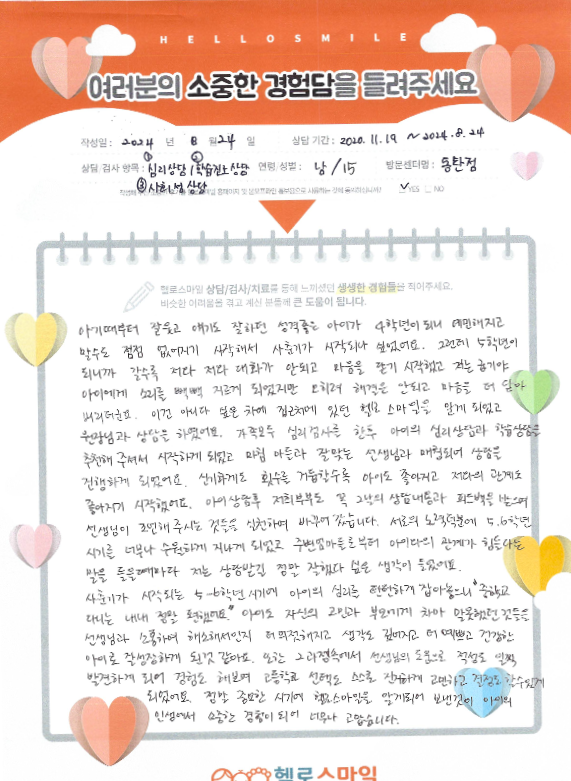 HELLOSMILE
여러분의 소중한 경험담을 들려주세요
작성일 : 2024 년 8 월 24 일 상담 기간 : 2020. 11. 19 ~ 2024. 8. 24
상담/검사 항목 : ①심리상담 / ②학습진로상담 연령/성별 : 남 / 15 방문센터명 : 동탄점
③사회성상담
YES NO
헬로스마일 상담/검사/치료를 통해 느끼셨던 생생한 경험들을 적어주세요.
비슷한 어려움을 겪고 계신 분들께 큰 도움이 됩니다.
아기때부터 잘웃고 얘기도 잘하던 성격좋은 아이가 4학년이 되니 예민해지고
말수도 점점 없어지기 시작해서 사춘기가 시작되나 싶었어요. 그런데 5학년이
되니까 갈수록 저와 저와 대화가 안되고 마음을 닫기 시작했고 저는 급기야
아이에게 소리를 빽빽 지르게 되었지만 오히려 해결은 안되고 마음을 더 닫아
버리더군요. 이건 아니다 싶은 차에 집근처에 있던 헬로스마일을 알게 되었고
원장님과 상담을 하였어요. 가족모두 심리검사를 한후 아이의 심리상담과 학습상담을
추천해 주셔서 시작하게 되었고 마침 아들과 잘맞는 선생님과 매칭되어 상담을
진행하게 되었어요. 신기하게도 횟수를 거듭할수록 아이도 좋아지고 저와의 관계도
좋아지기 시작했어요. 아이상담후 저희부부도 꼭 그날의 상담내용과 피드백을 받으며
선생님이 조언해 주시는 것들을 실천하며 바꾸어 갔습니다. 서로의 노력덕분에 5,6학년
시기를 너무나 수월하게 지나게 되었고 주변엄마들로부터 아이와의 관계가 힘들다는
말을 들을때마다 저는 상담받길 정말 잘했다 싶은 생각이 들었어요.
사춘기가 시작되는 5-6학년 시기에 아이의 심리를 탄탄하게 잡아놓으니 "중학교
다니는 내내 정말 편했어요." 아이도 자신의 고민과 부모에게 차마 말못했던 것들을
선생님과 소통하며 해소해서인지 더 멋져해지고 생각도 깊어지고 더 예쁘고 건강한
아이로 잘성장하게 된것 같아요. 또한 그 과정속에서 선생님의 도움으로 적성도 일찍
발견하게 되어 경험도 해보며 고등학교 선택도 스스로 진지하게 고민하고 결정도 할수있게
되었어요. 정말 중요한 시기에 헬로스마일을 알게되어 보낸것이 아이의
인생에서 소중한 경험이 되어 너무나 고맙습니다.
헬로스마일